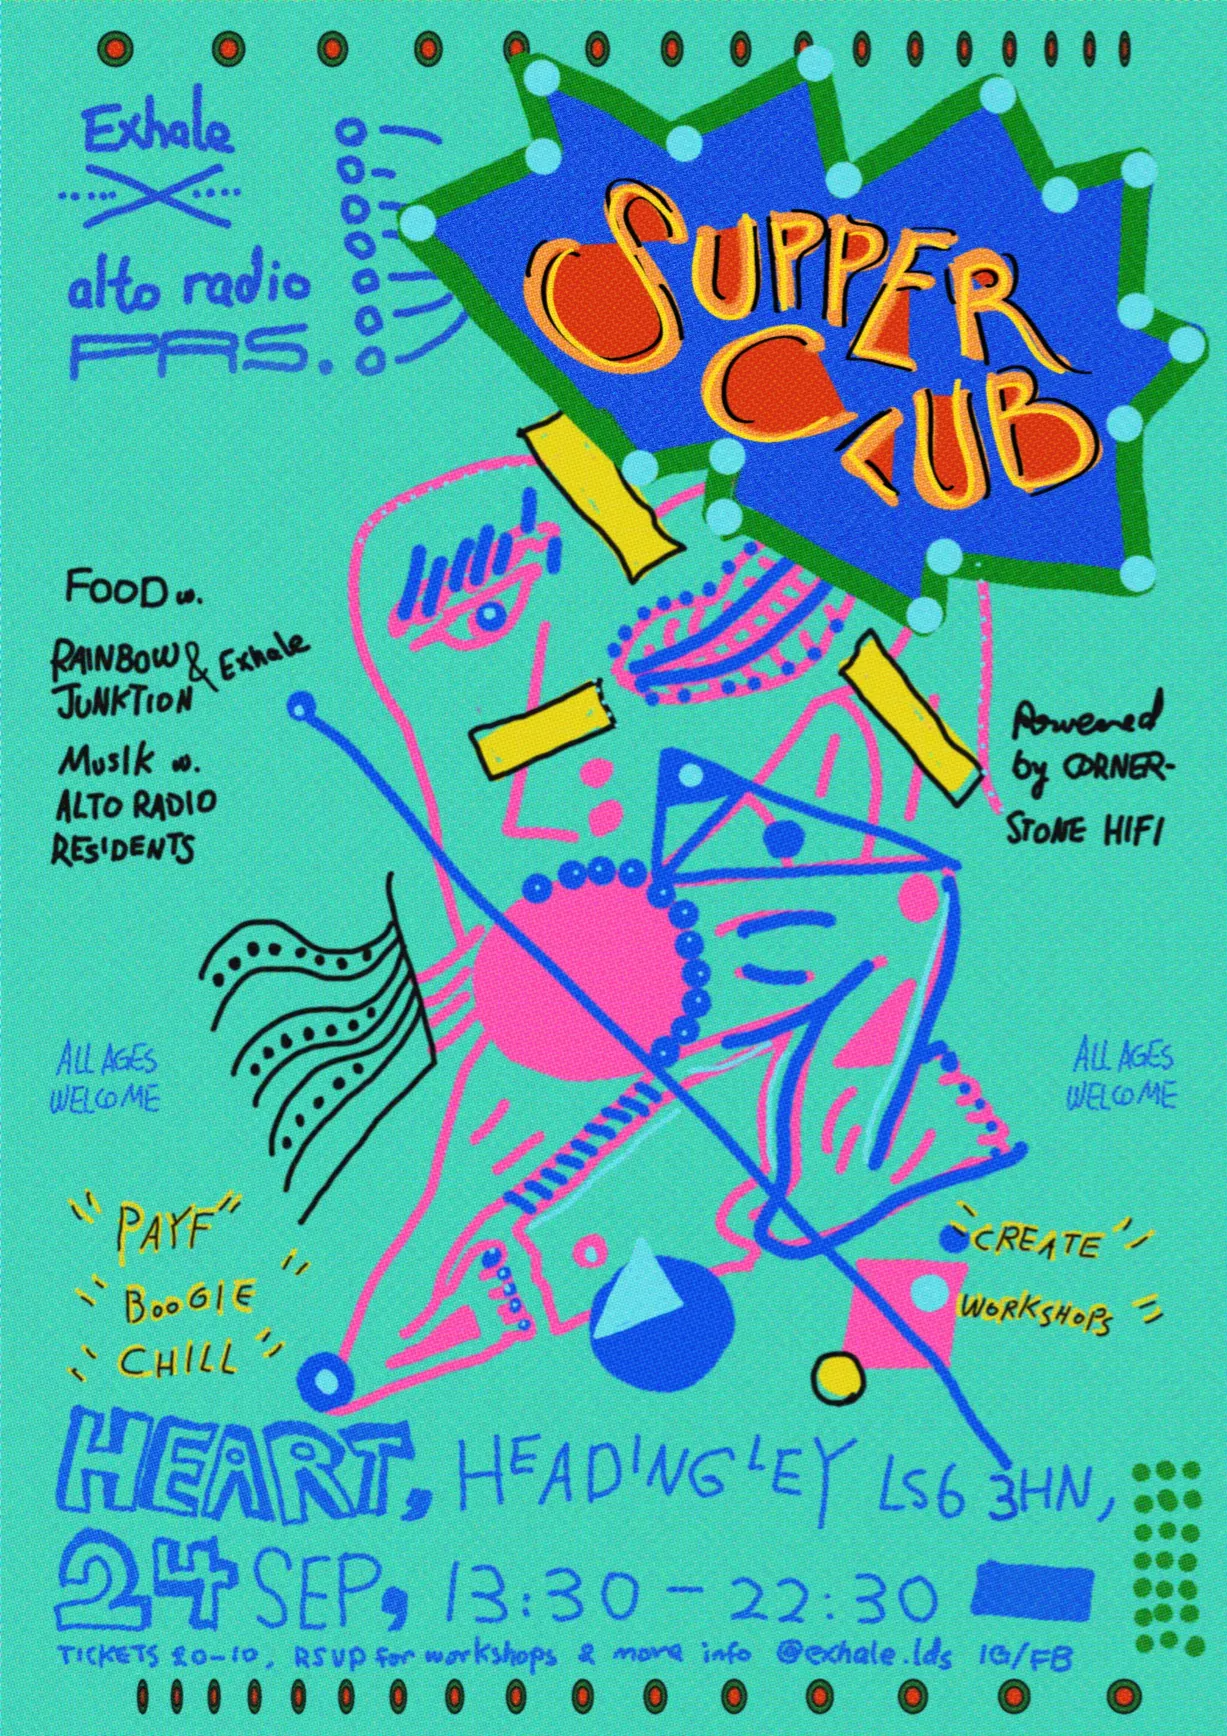 Exhale
X
alto radio
PRS.
SUPPER
CLUB
FOOD w.
RAINBOW & Exhale
JUNKTION
MUSIK w.
ALTO RADIO
RESIDENTS
Powered
by CORNER-
STONE HIFI
ALL AGES
WELCOME
ALL AGES
WELCOME
"PAYF"
"BOOGIE"
"CHILL"
"CREATE"
WORKSHOPS"
HEART, HEADINGLEY LS6 3HN,
24 SEP, 13:30 - 22:30
TICKETS £0-10, RSUP for workshops & more info @exhale.lds IG/FB